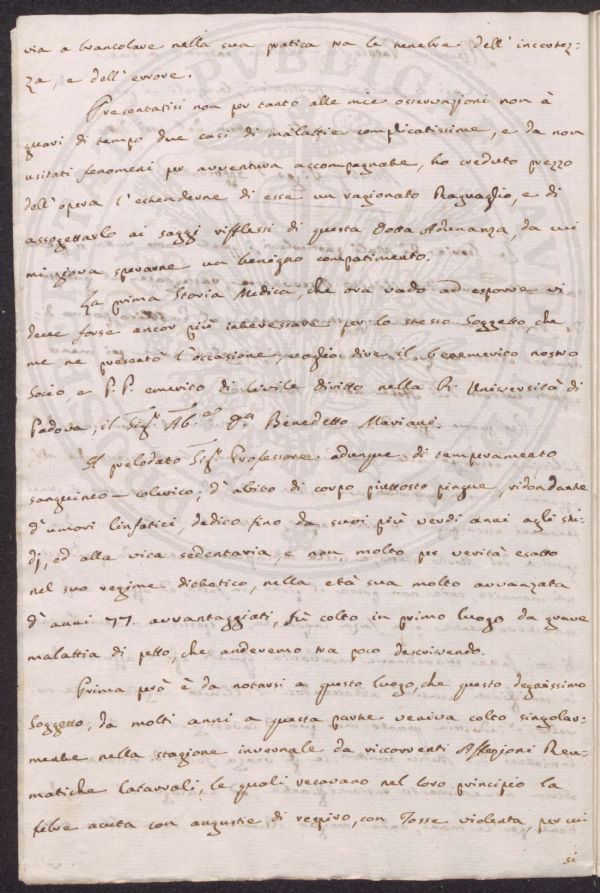 via a brancolare nella sua pratica tra le tenebre dell' incertez-
za, e dell' errore.
Presentatisi non per tanto alle mie osservazioni non à
guari di tempo due casi di malattie complicatissime, e da non
usitati fenomeni per avventura accompagnate, ho creduto prezzo
dell' opera l' estenderne di esse un ragionato Raguaglio, e di
assogettarlo ai saggi rifflessi di questa Dotta Adunanza, da cui
mi giova sperarne un benigno compatimento.
La prima Storia Medica, che ora vado ad esporre vi
deve forse ancor più interessare per lo stesso Soggetto, che
me ne presentò l' occasione, voglio dire il benemerito nostro
Socio e P. P. emerito di Civile diritto nella R. Università di
Padova, il Sig.r Ab.e Dn Benedetto Mariani.
Il prelodato Sig.r Professore adunque di temperamento
sanguineo-colerico, d' abito di corpo piuttosto pingue, ridondante
d' umori linfatici, dedito fino da suoi più verdi anni agli stu-
dj, ed alla vita sedentaria, e non molto per verità esatto
nel suo regime dietetico, nella età sua molto avvanzata
d' anni 77. avvantaggiati, fù colto in primo luogo da grave
malattia di petto, che anderemo tra poco descrivendo.
Prima però è da notarsi a questo luogo, che questo degnissimo
Soggetto, da molti anni a questa parte veniva colto singolar-
mente nella stagione invernale da riccorrenti Affezioni Reu-
matiche Catarrali, le quali recavano nel loro principio la
febre acuta con angustie di respiro, con Tosse violenta, per cui
si